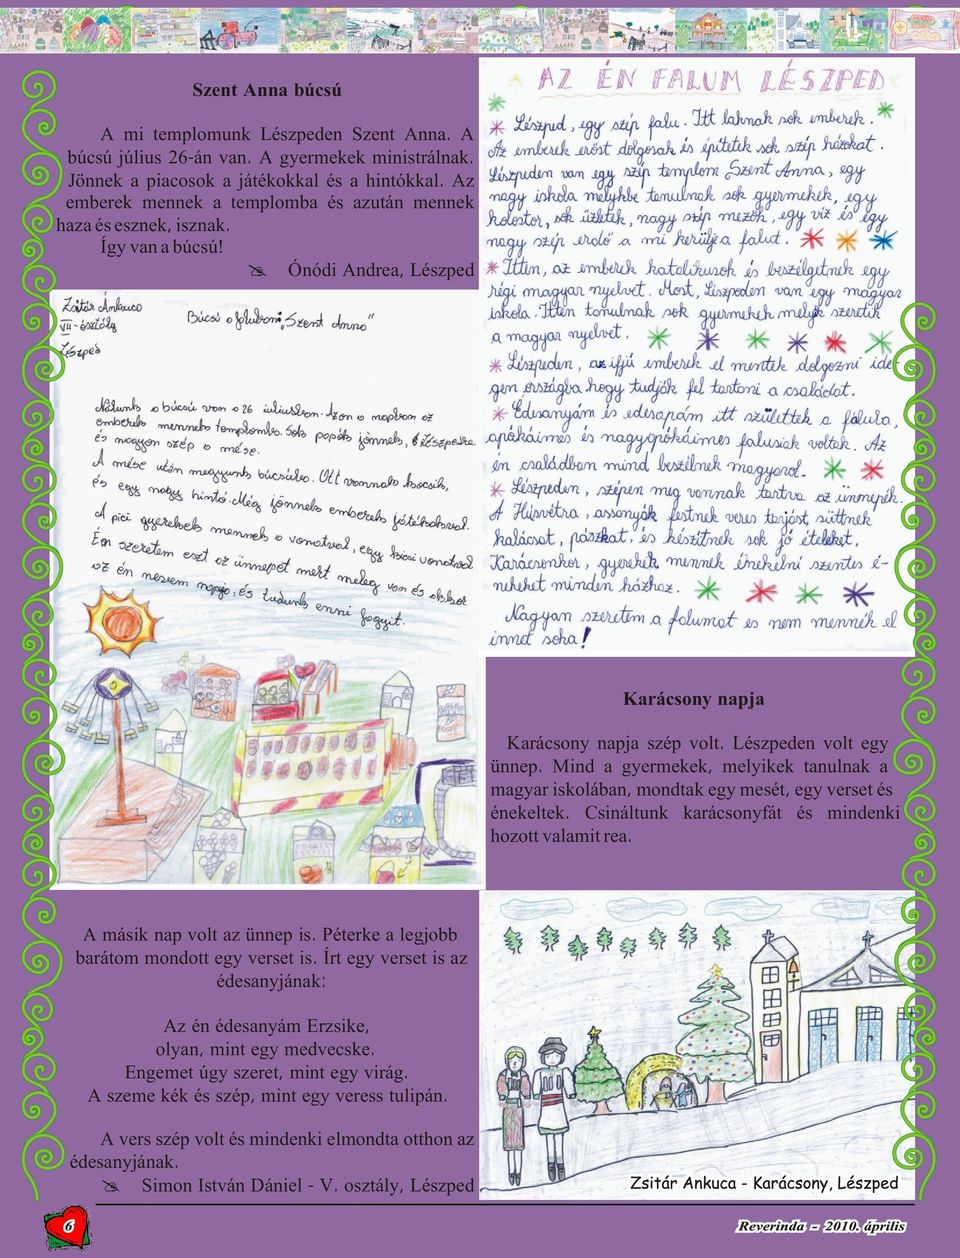 Szent Anna búcsú
A mi templomunk Lészpeden Szent Anna. A
búcsú július 26-án van. A gyermekek ministrálnak.
Jönnek a piacosok a játékokkal és a hintókkal. Az
emberek mennek a templomba és azután mennek
haza és esznek, isznak.
Így van a búcsú!
Ónódi Andrea, Lészped
Zsitár Ankuca
VII - osztály
Lészped
Búcsú a falubom „Szent Anna”
Nálunk a búcsú van a 26 iuliusban. Azon a napban az
emberek mennek templomba. Sok papok jönnek, Lészpedre
és nagyon szép a mése.
A mése után megyunk búcsúba. Ott vannak kocsik,
és egy nagy hintó. Még jönnek emberek játékakval.
A pici gyerekek mennek a vonatval, egy kicsi vonatval
Én szeretem eszt az ünnepet mert meleg van és akkor
az én nevem napja, és tudunk enni fogyit.
AZ ÉN FALUM LÉSZPED
Lészped, egy szép falu. Itt laknak sok emberek.
Az emberek erőst dolgosak és építetek sok szép házokat.
Lészpeden van egy szép templom Szent Anna, egy
nagy iskola melyikbe tanulnak sok gyermekek, egy
kolostor, sok üzletek, nagy szép mezők, egy víz és egy
nagy szép erdő a mi kerülje a falut.
Itten, az emberek katalikusok és beszélgetnek egy
régi magyar nyelvet. Most, Lészpeden van egy magyar
iskola. Itten tonulnak sok gyermekek melyik szeretik
a magyar nyelvet.
Lészpeden, az ifjú emberek el mentek dolgozni ide-
gen országba hogy tudják fel tartani a családot.
Édesanyám és édesapám itt születtek a faluba,
apókáimes és nagyapókáimes falusiak voltek. Az
én családban mind beszélnek magyarol.
Lészpeden, szépen meg vannak tartva az ünnepék.
A Húsvétra, assonyák festnek veres tojást, süttnek
kalácsot, pászkat, és készítnek sok jó ételeket.
Karácsonkor, gyerekek mennek énekelni szentes é-
nekeket minden házhoz.
Nagyan szeretem a falumat es nem mennék el
innet soha!
Karácsony napja
Karácsony napja szép volt. Lészpeden volt egy
ünnep. Mind a gyermekek, melyikek tanulnak a
magyar iskolában, mondtak egy mesét, egy verset és
énekeltek. Csináltunk karácsonyfát és mindenki
hozott valamit rea.
A másik nap volt az ünnep is. Péterke a legjobb
barátom mondott egy verset is. Írt egy verset is az
édesanyjának:
Az én édesanyám Erzsike,
olyan, mint egy medvecske.
Engemet úgy szeret, mint egy virág.
A szeme kék és szép, mint egy veress tulipán.
A vers szép volt és mindenki elmondta otthon az
édesanyjának.
Simon István Dániel - V. osztály, Lészped
Zsitár Ankuca - Karácsony, Lészped
6
Reverinda - 2010. április